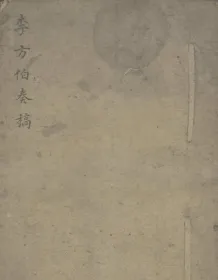 李方伯奏稿